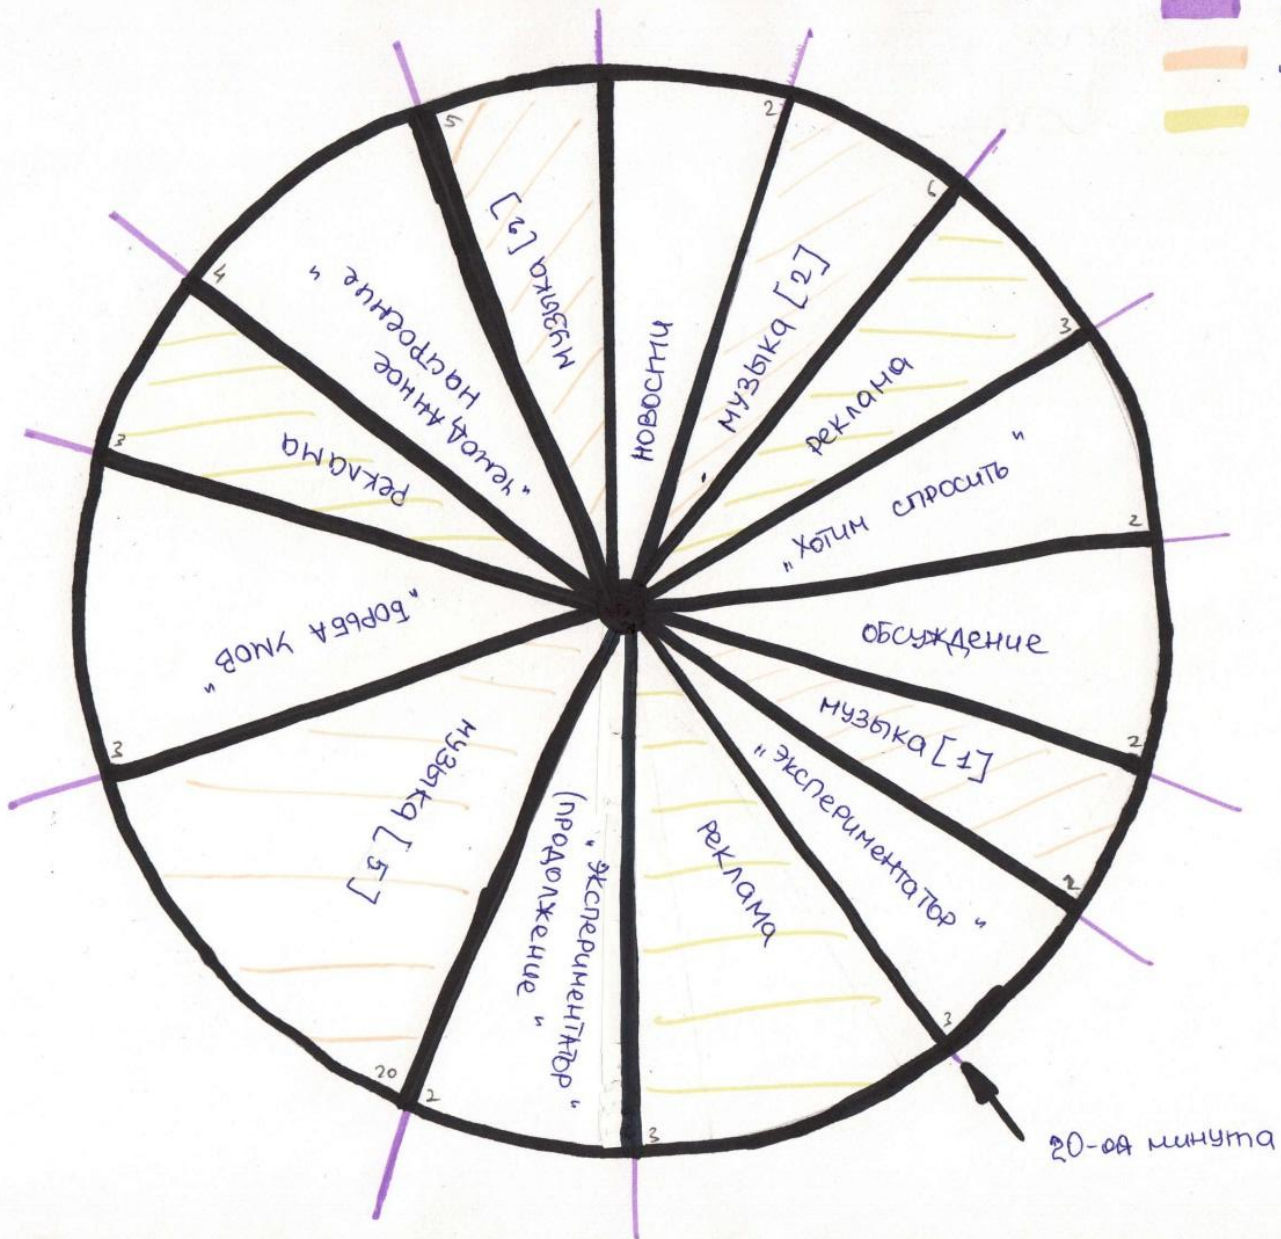 НОВОСТИ
2
МУЗЫКА [2]
6
РЕКЛАМА
3
„ХОТИМ СПРОСИТЬ"
2
ОБСУЖДЕНИЕ
2
МУЗЫКА [1]
2
„ЭКСПЕРИМЕНТАТОР"
3
20-ая минута
РЕКЛАМА
3
„ЭКСПЕРИМЕНТАТОР"
(ПРОДОЛЖЕНИЕ"
2
МУЗЫКА [5]
20
„БОРЬБА УМОВ"
3
РЕКЛАМА
3
„ЧЕМОДАННОЕ
НАСТРОЕНИЕ"
4
МУЗЫКА [2]
5